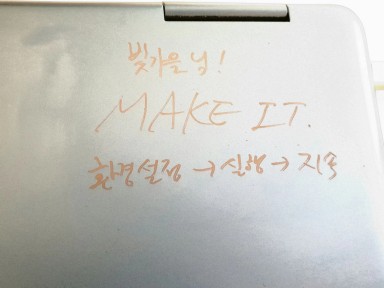 빛가온님!
MAKE IT.
환경설정 → 실행 → 지속